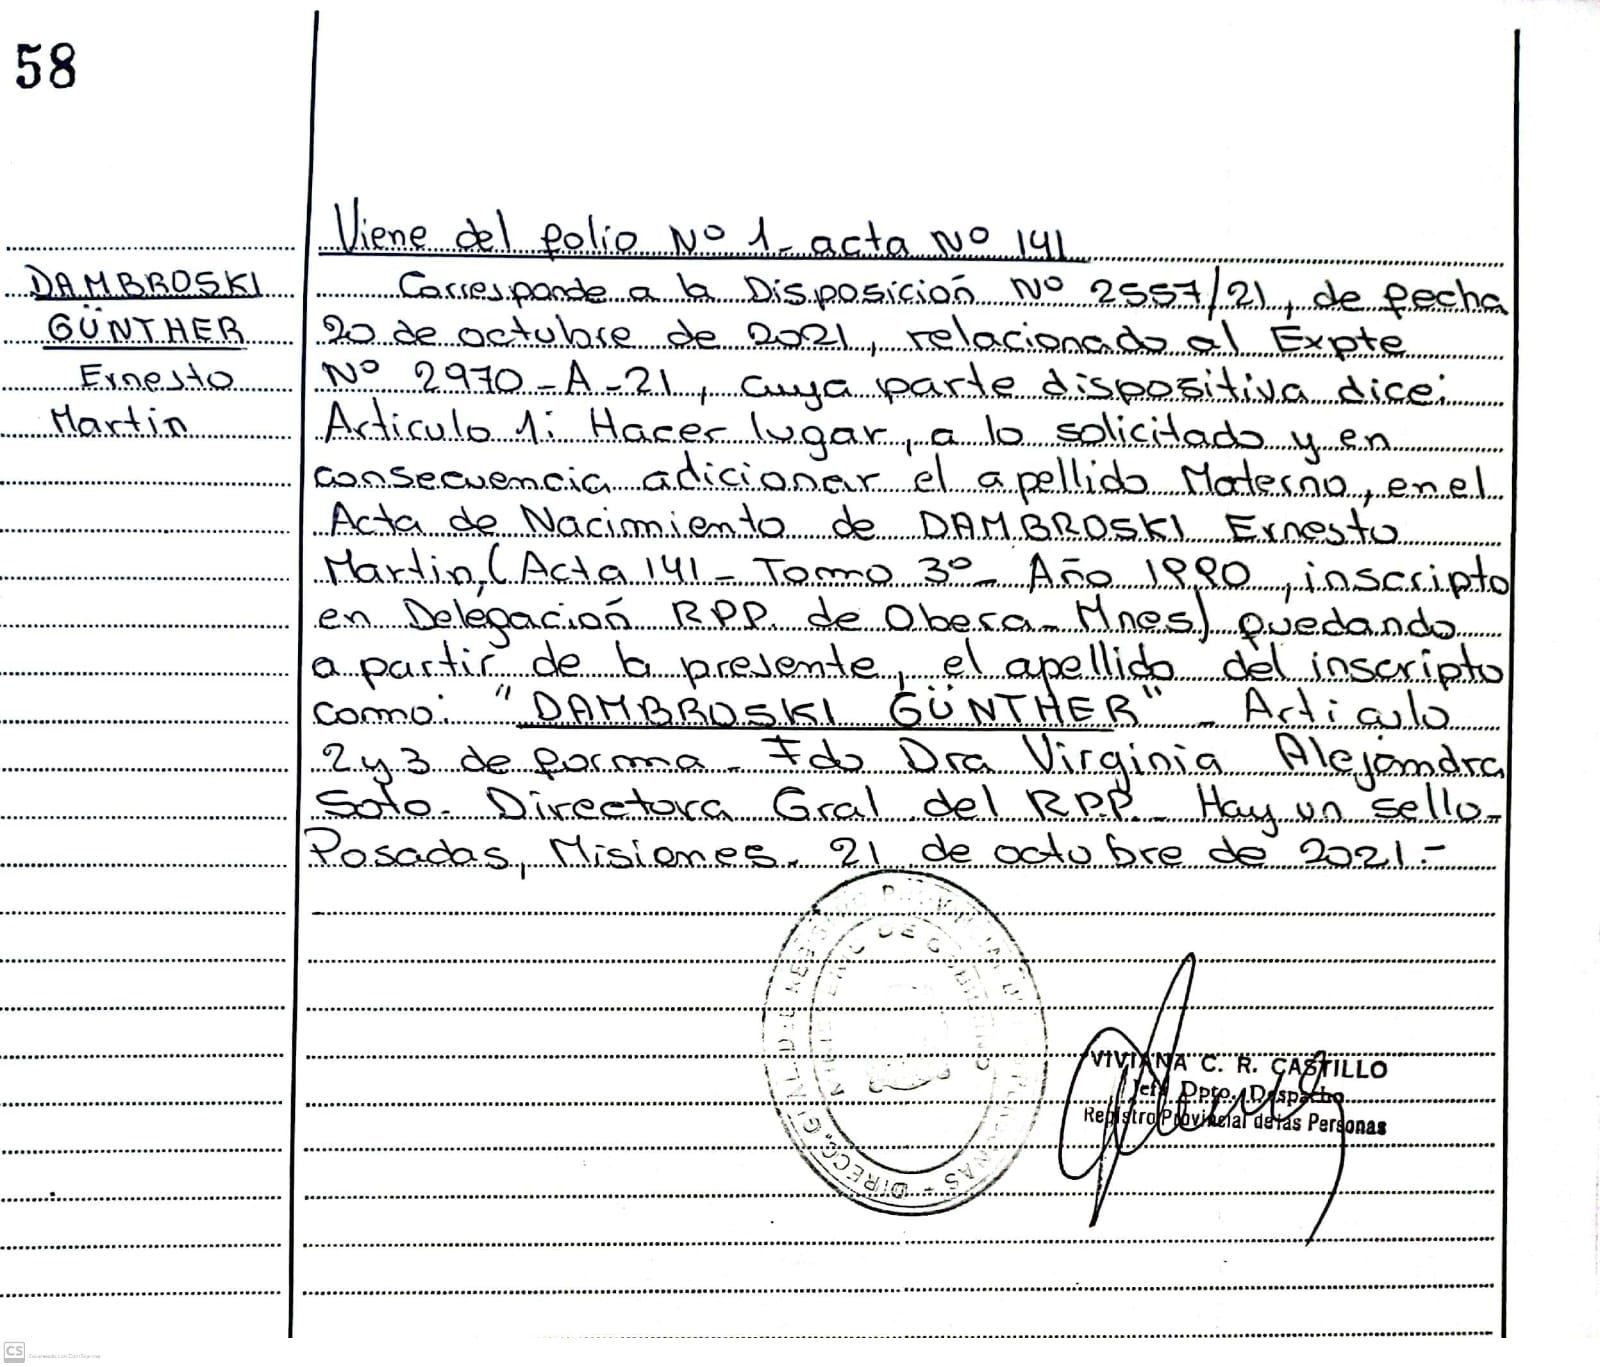 58
DAMBROSKI
GÜNTHER
Ernesto
Martin
Viene del folio Nº 1- acta Nº 141
Corresponde a la Disposición Nº 2557/21, de fecha
20 de octubre de 2021, relacionado al Expte
Nº 2970-A-21, cuya parte dispositiva dice:
Articulo 1: Hacer lugar, a lo solicitado y en
consecuencia adicionar el apellido Materno, en el
Acta de Nacimiento de DAMBROSKI Ernesto
Martin, (Acta 141 - Tomo 3º- Año 1990, inscripto
en Delegación RPP. de Obera- Mnes) quedando
a partir de la presente, el apellido del inscripto
como: "DAMBROSKI GÜNTHER" - Articulo
2 y 3 de forma - Fdo Dra Virginia Alejandra
Soto- Directora Gral del RPP.- Hay un sello-
Posadas, Misiones. 21 de octubre de 2021.-
MINISTERIO DE GOBIERNO
VIVIANA C. R. CASTILLO
Jefe Dpto. Despacho
Registro Provincial de las Personas
CS